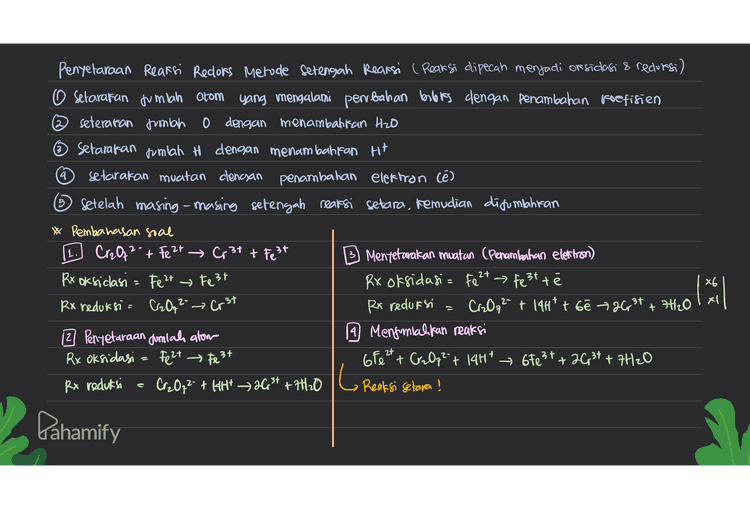 Penyetaraan Reaksi Redoks Metode Setengah Reaksi (Reaksi dipecah menjadi oksidasi & reduksi)
① Setarakan jumlah atom yang mengalami perubahan biloks dengan penambahan koefisien
② setarakan jumlah O dengan menambahkan H₂O
③ Setarakan jumlah H dengan menambahkan H⁺
④ setarakan muatan dengan penambahan elektron (ē)
⑤ Setelah masing-masing setengah reaksi setara, kemudian dijumlahkan
※ Pembahasan soal
1. Cr₂O₇²⁻ + Fe²⁺ → Cr³⁺ + Fe³⁺
Rx oksidasi = Fe²⁺ → Fe³⁺
Rx reduksi = Cr₂O₇²⁻ → Cr³⁺
2 Penyetaraan jumlah atom
Rx oksidasi = Fe²⁺ → Fe³⁺
Rx reduksi = Cr₂O₇²⁻ + 14H⁺ → 2Cr³⁺ + 7H₂O
3 Menyetarakan muatan (Penambahan elektron)
Rx oksidasi = Fe²⁺ → Fe³⁺ + ē | x6
Rx reduksi = Cr₂O₇²⁻ + 14H⁺ + 6ē → 2Cr³⁺ + 7H₂O | x1
4 Menjumlahkan reaksi
6Fe²⁺ + Cr₂O₇²⁻ + 14H⁺ → 6Fe³⁺ + 2Cr³⁺ + 7H₂O
↳ Reaksi setara !
Pahamify